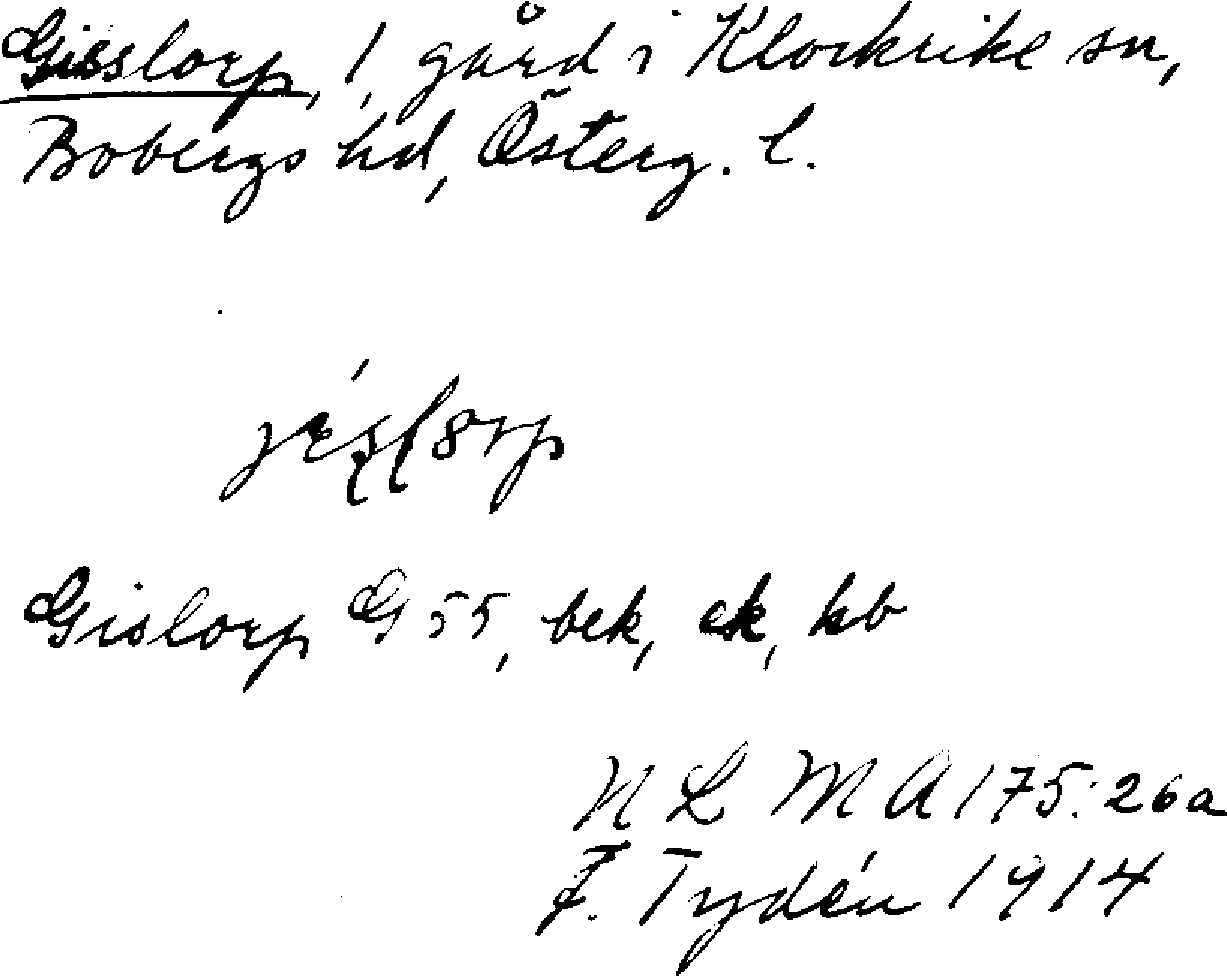 Gisslorp, 1 gård i Klockrike sn,
Bobergs hd, Österg. l.
Gislorp G 55, bek, ek, kb
N L M A 175:26a
F. Tydén 1914